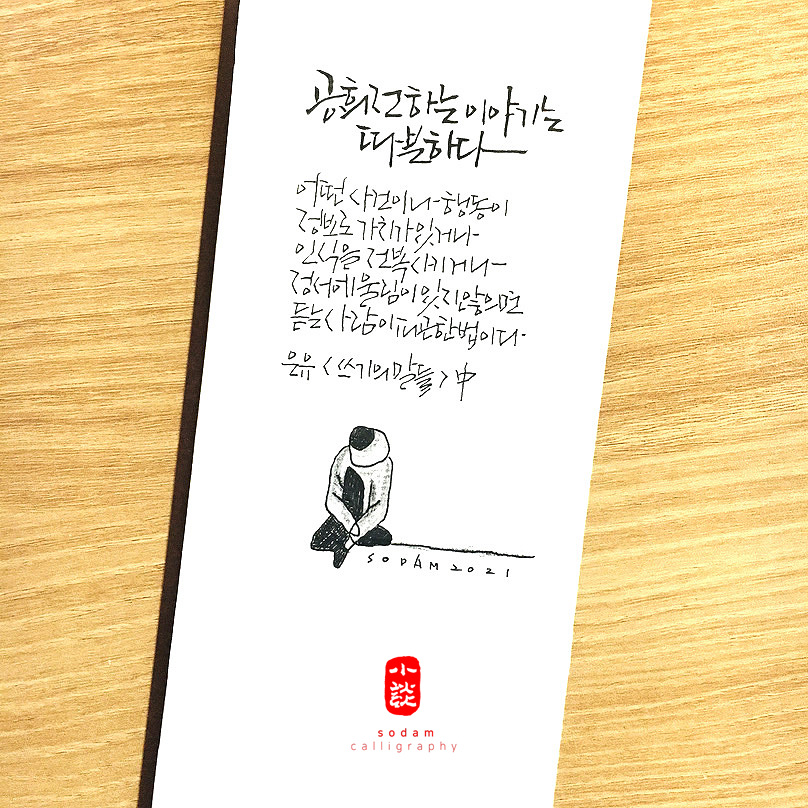 공회전하는 이야기는
따분하다
어떤 사건이나 행동이
정보로 가치가 있거나
인식을 전복시키거나
정서에 울림이 있지 않으면
듣는 사람이 피곤한 법이다.
은유 <쓰기의 말들> 中
SODAM 2021
小談
sodam
calligraphy